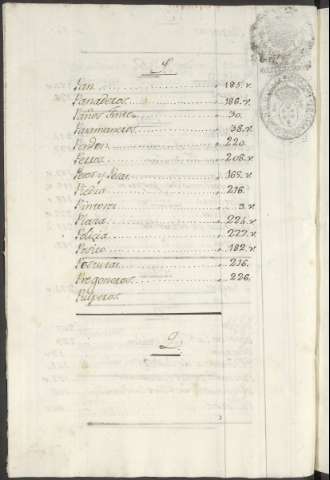 P.
Pan 185. v.
Panaderos 186. v.
Paños finos 30.
Pasamaneros 38. v.
Perdon 220.
Perros 206. v.
Pesos y Pesas 165. v.
Piedra 216.
Pintores 9. v.
Plaza 224. v.
Policia 277. v.
Posito 182. v.
Posturas 236.
Pregoneros 226.
Pulperos
Q.